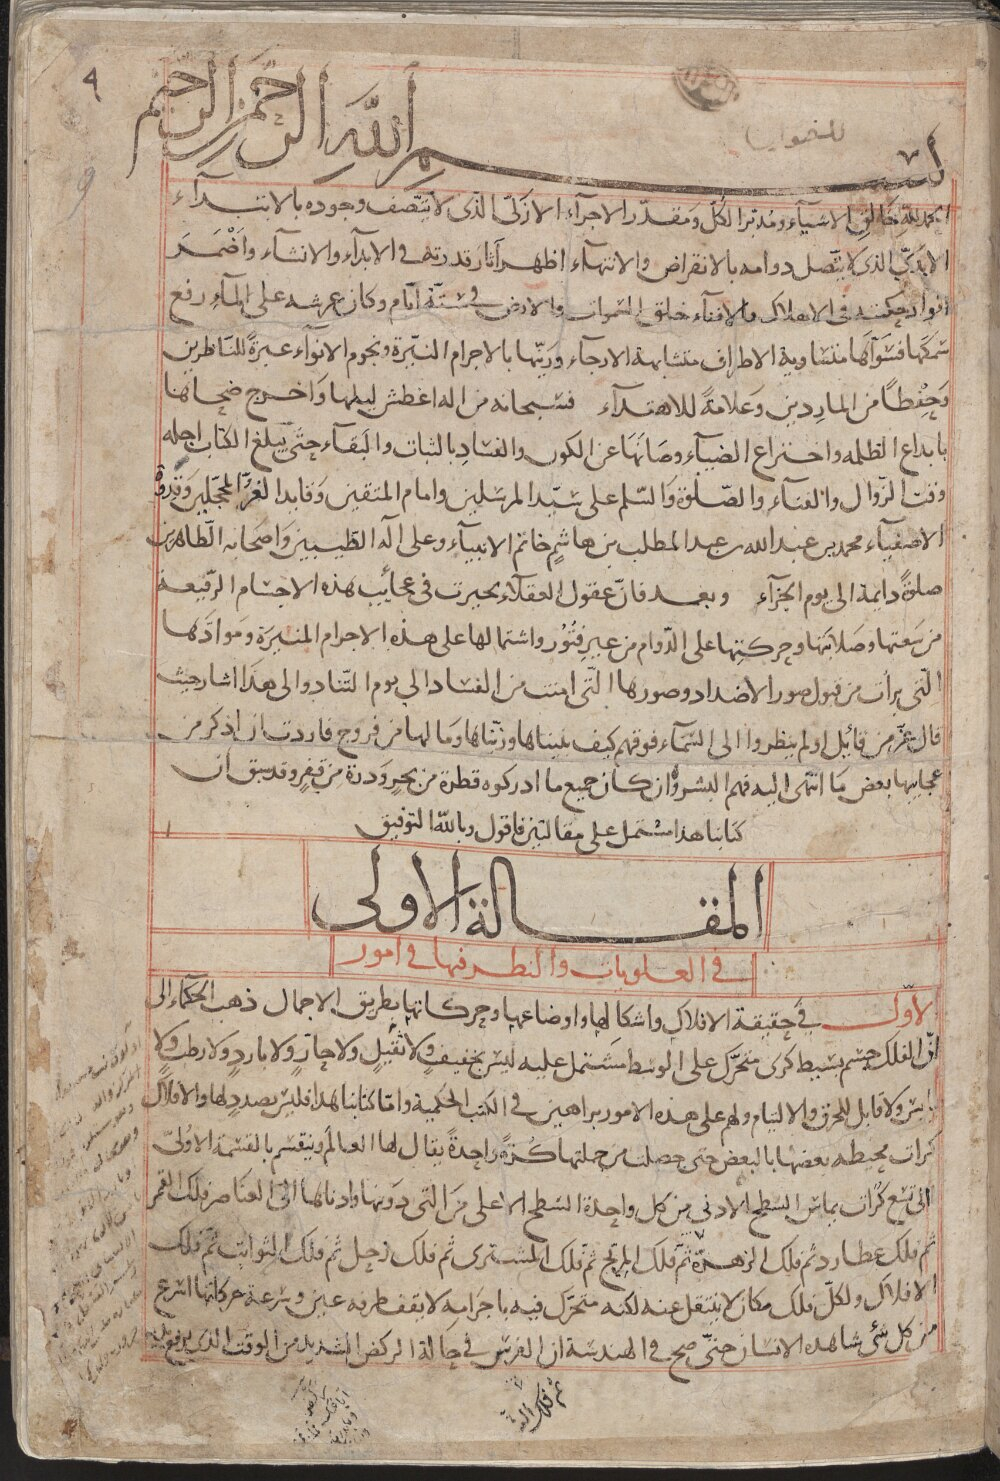 ٩
بسم الله الرحمن الرحيم
الحمد لله خالق الاشيآء ومدبر الكل ومقدر الاجزآء الازلى الذى لا يتصف وجوده بالابتدآء
الابدي الذى لا يتصل دوامه بالانقراض والانتهآء اظهر آثار قدرته فى الابدآء والانشآء واضمر
انوار حكمته فى الاهلاك والافنآء خلق السموات والارض فى ستة ايام وكان عرشه على المآء رفع
سمكها فسواها متساوية الاطراف متشابهة الارجآء وزينها بالاجرام النيرة ونجوم الانوآء عبرةً للناظرين
وحفظا من الماردين وعلامةً للاهتدآء فسبحانه من اله اغطش ليلها واخرج ضحاها
بابداع الظلمه واختراع الضيآء وصانها عن الكون والفساد بالثبات والبقآء حتى يبلغ الكتاب اجله
وقت الزوال والفنآء والصلوة والسلم على سيد المرسلين وامام المتقين وقايد الغر المحجلين وقدوة
الاصفيآء محمد بن عبد الله بن عبد المطلب بن هاشم خاتم الانبيآء وعلى آله الطيبين واصحابه الطاهرين
صلوةً دايمة الى يوم الجزآء وبعد فان عقول العقلآء تحيرت فى عجائب هذه الاجسام الرفيعة
من سعتها وصلابتها وحركتها على الدوام من غير فتور واشتمالها على هذه الاجرام المنيرة وموادها
التى برأت من قبول صور الاضداد وصورها التى امنت من الفساد الى يوم التناد والى هذا اشار حيث
قال عز من قائل اولم ينظروا الى السمآء فوقهم كيف بنيناها وزيناها وما لها من فروج فاردت ان اذكر من
عجايبها بعض ما انتهى اليه فهم البشر وان كان جميع ما ادركوه قطرة من بحر وذرة من قفر وقد سبق ان
كتابنا هذا مشتمل على مقالتين فاقول وبالله التوفيق
المقالة الاولى
فى العلويات والنظر فيها فى امور
الاول فى حقيقة الافلاك واشكالها واوضاعها وحركاتها بطريق الاجمال ذهب الحكماء الى
ان الفلك جسم بسيط كرى متحرك على الوسط مشتمل عليه ليس بخفيف ولا ثقيل ولا حار ولا بارد ولا رطب ولا
يابس ولا قابل للخرق والالتيام ولهم على هذه الامور براهين فى الكتب الحكمية واما كتابنا هذا فليس بصدد لها والافلاك
كرات محيطه بعضها بالبعض حتى حصلت من جملتها كرة واحدة يقال لها العالم وينقسم بالقسمة الاولى
الى تسع كرات يماس السطح الادنى من كل واحدة السطح الاعلى من التى دونها وادناها الى العناصر فلك القمر
ثم فلك عطارد ثم فلك الزهرة ثم فلك المريخ ثم فلك المشترى ثم فلك زحل ثم فلك الثوابت ثم فلك
الافلاك ولكل فلك مكان لا ينتقل عنه لكنه متحرك فيه باجزامه لا يقف طرفه عين وسرعة حركاتها اسرع
من كل شى شاهده الانسان حتى صح فى الهندسة ان الفرس فى حالة الركض الشديد من الوقت الذى يرفع
ثم فلك